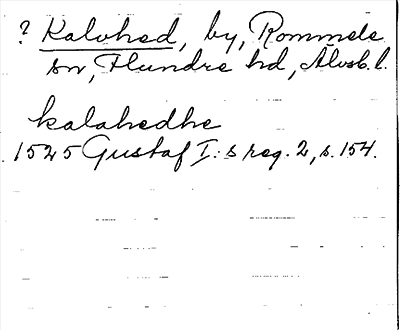 ? Kalvhed, by, Rommele
sn, Flundre hd, Älvsb. l.
kalahedhe
1525 Gustaf I:s reg. 2, s. 154.